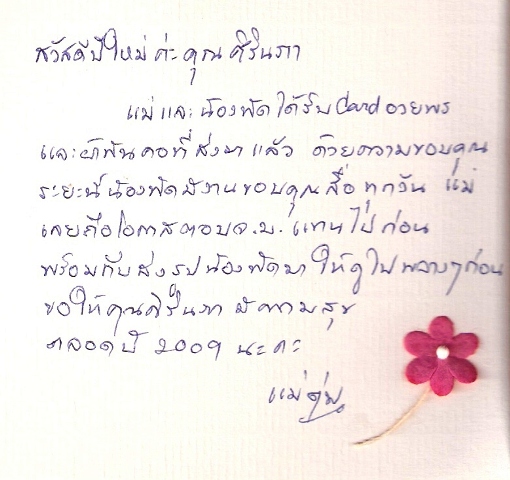 สวัสดีปีใหม่ ค่ะ คุณ ศิรินภา
แม่ และ น้องพัด ได้รับ Card อวยพร
และ ผ้าพันคอที่ ส่งมา แล้ว ด้วยความขอบคุณ
ระยะนี้ น้องพัด มีงาน ขอบคุณสื่อ ทุกวัน แม่
เลยถือโอกาสตอบ จ.ม. แทน ไปก่อน
พร้อมกับ ส่ง รูปน้องพัดมา ให้ดูไปพลางๆก่อน
ขอให้ คุณศิรินภา มีความสุข
ตลอดปี 2009 นะคะ
แม่